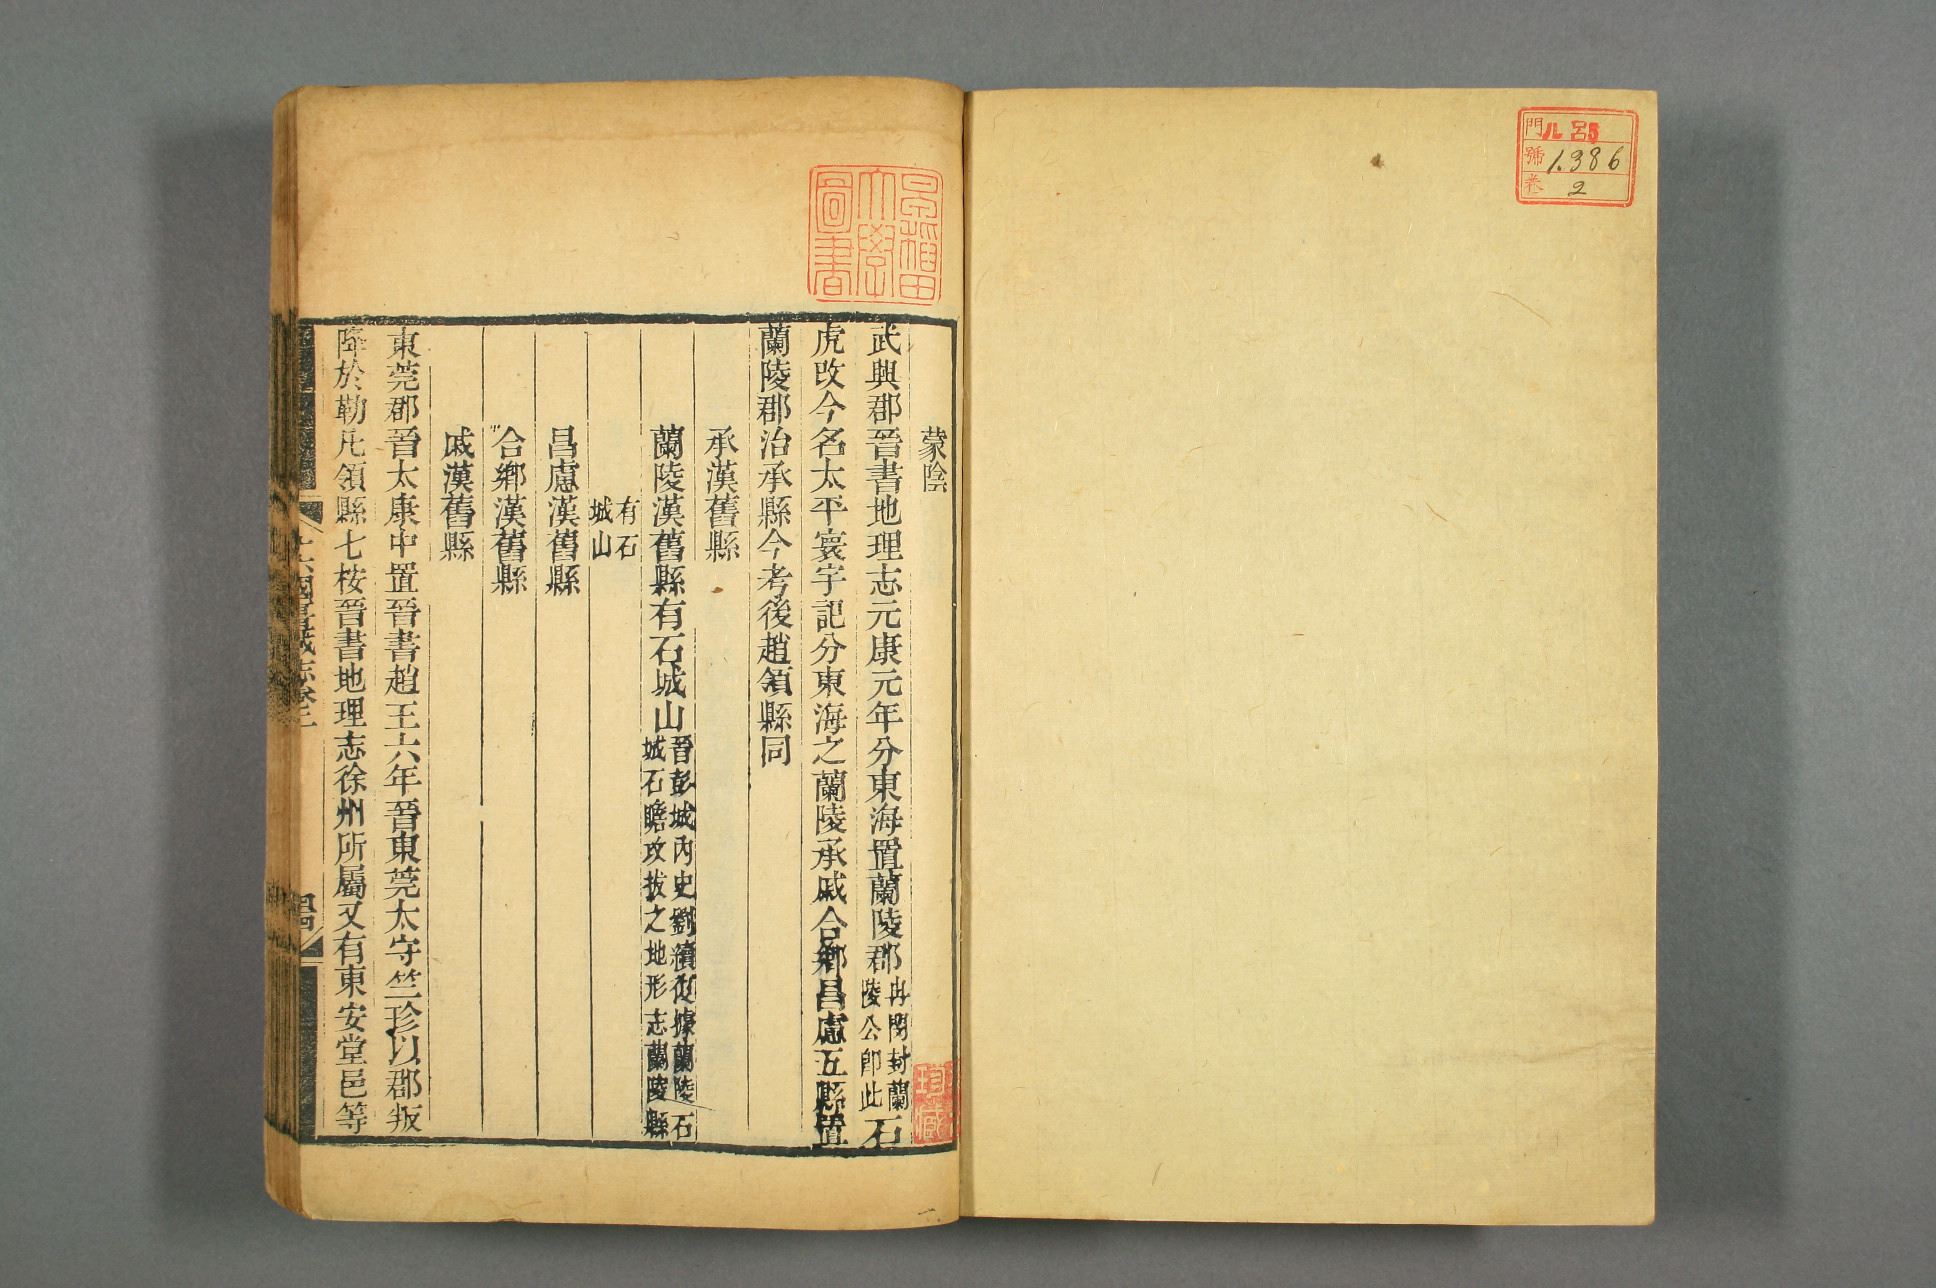 門 ル 呂5
號 1.386
卷 2
早稻田大學圖書
蒙陰
武興郡晉書地理志元康元年分東海置蘭陵郡冉閔封蘭陵公卽此石
虎改今名太平寰宇記分東海之蘭陵承戚合鄉昌慮五縣置
蘭陵郡治承縣今考後趙領縣同
承漢舊縣
蘭陵漢舊縣有石城山晉彭城內史劉續復據蘭陵石城石瞻攻拔之地形志蘭陵縣
有石城山
昌慮漢舊縣
合鄉漢舊縣
戚漢舊縣
東莞郡晉太康中置晉書趙王六年晉東莞太守竺珍以郡叛
降於勒凡領縣七桉晉書地理志徐州所屬又有東安堂邑等
十六國疆域志卷三
珍藏